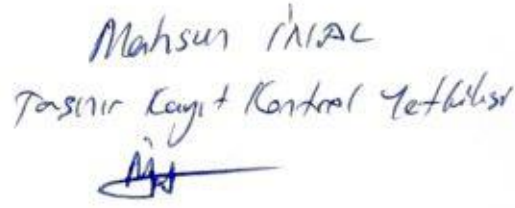 Mahsun İNAL
Taşınır Kayıt Kontrol Yetkilisi